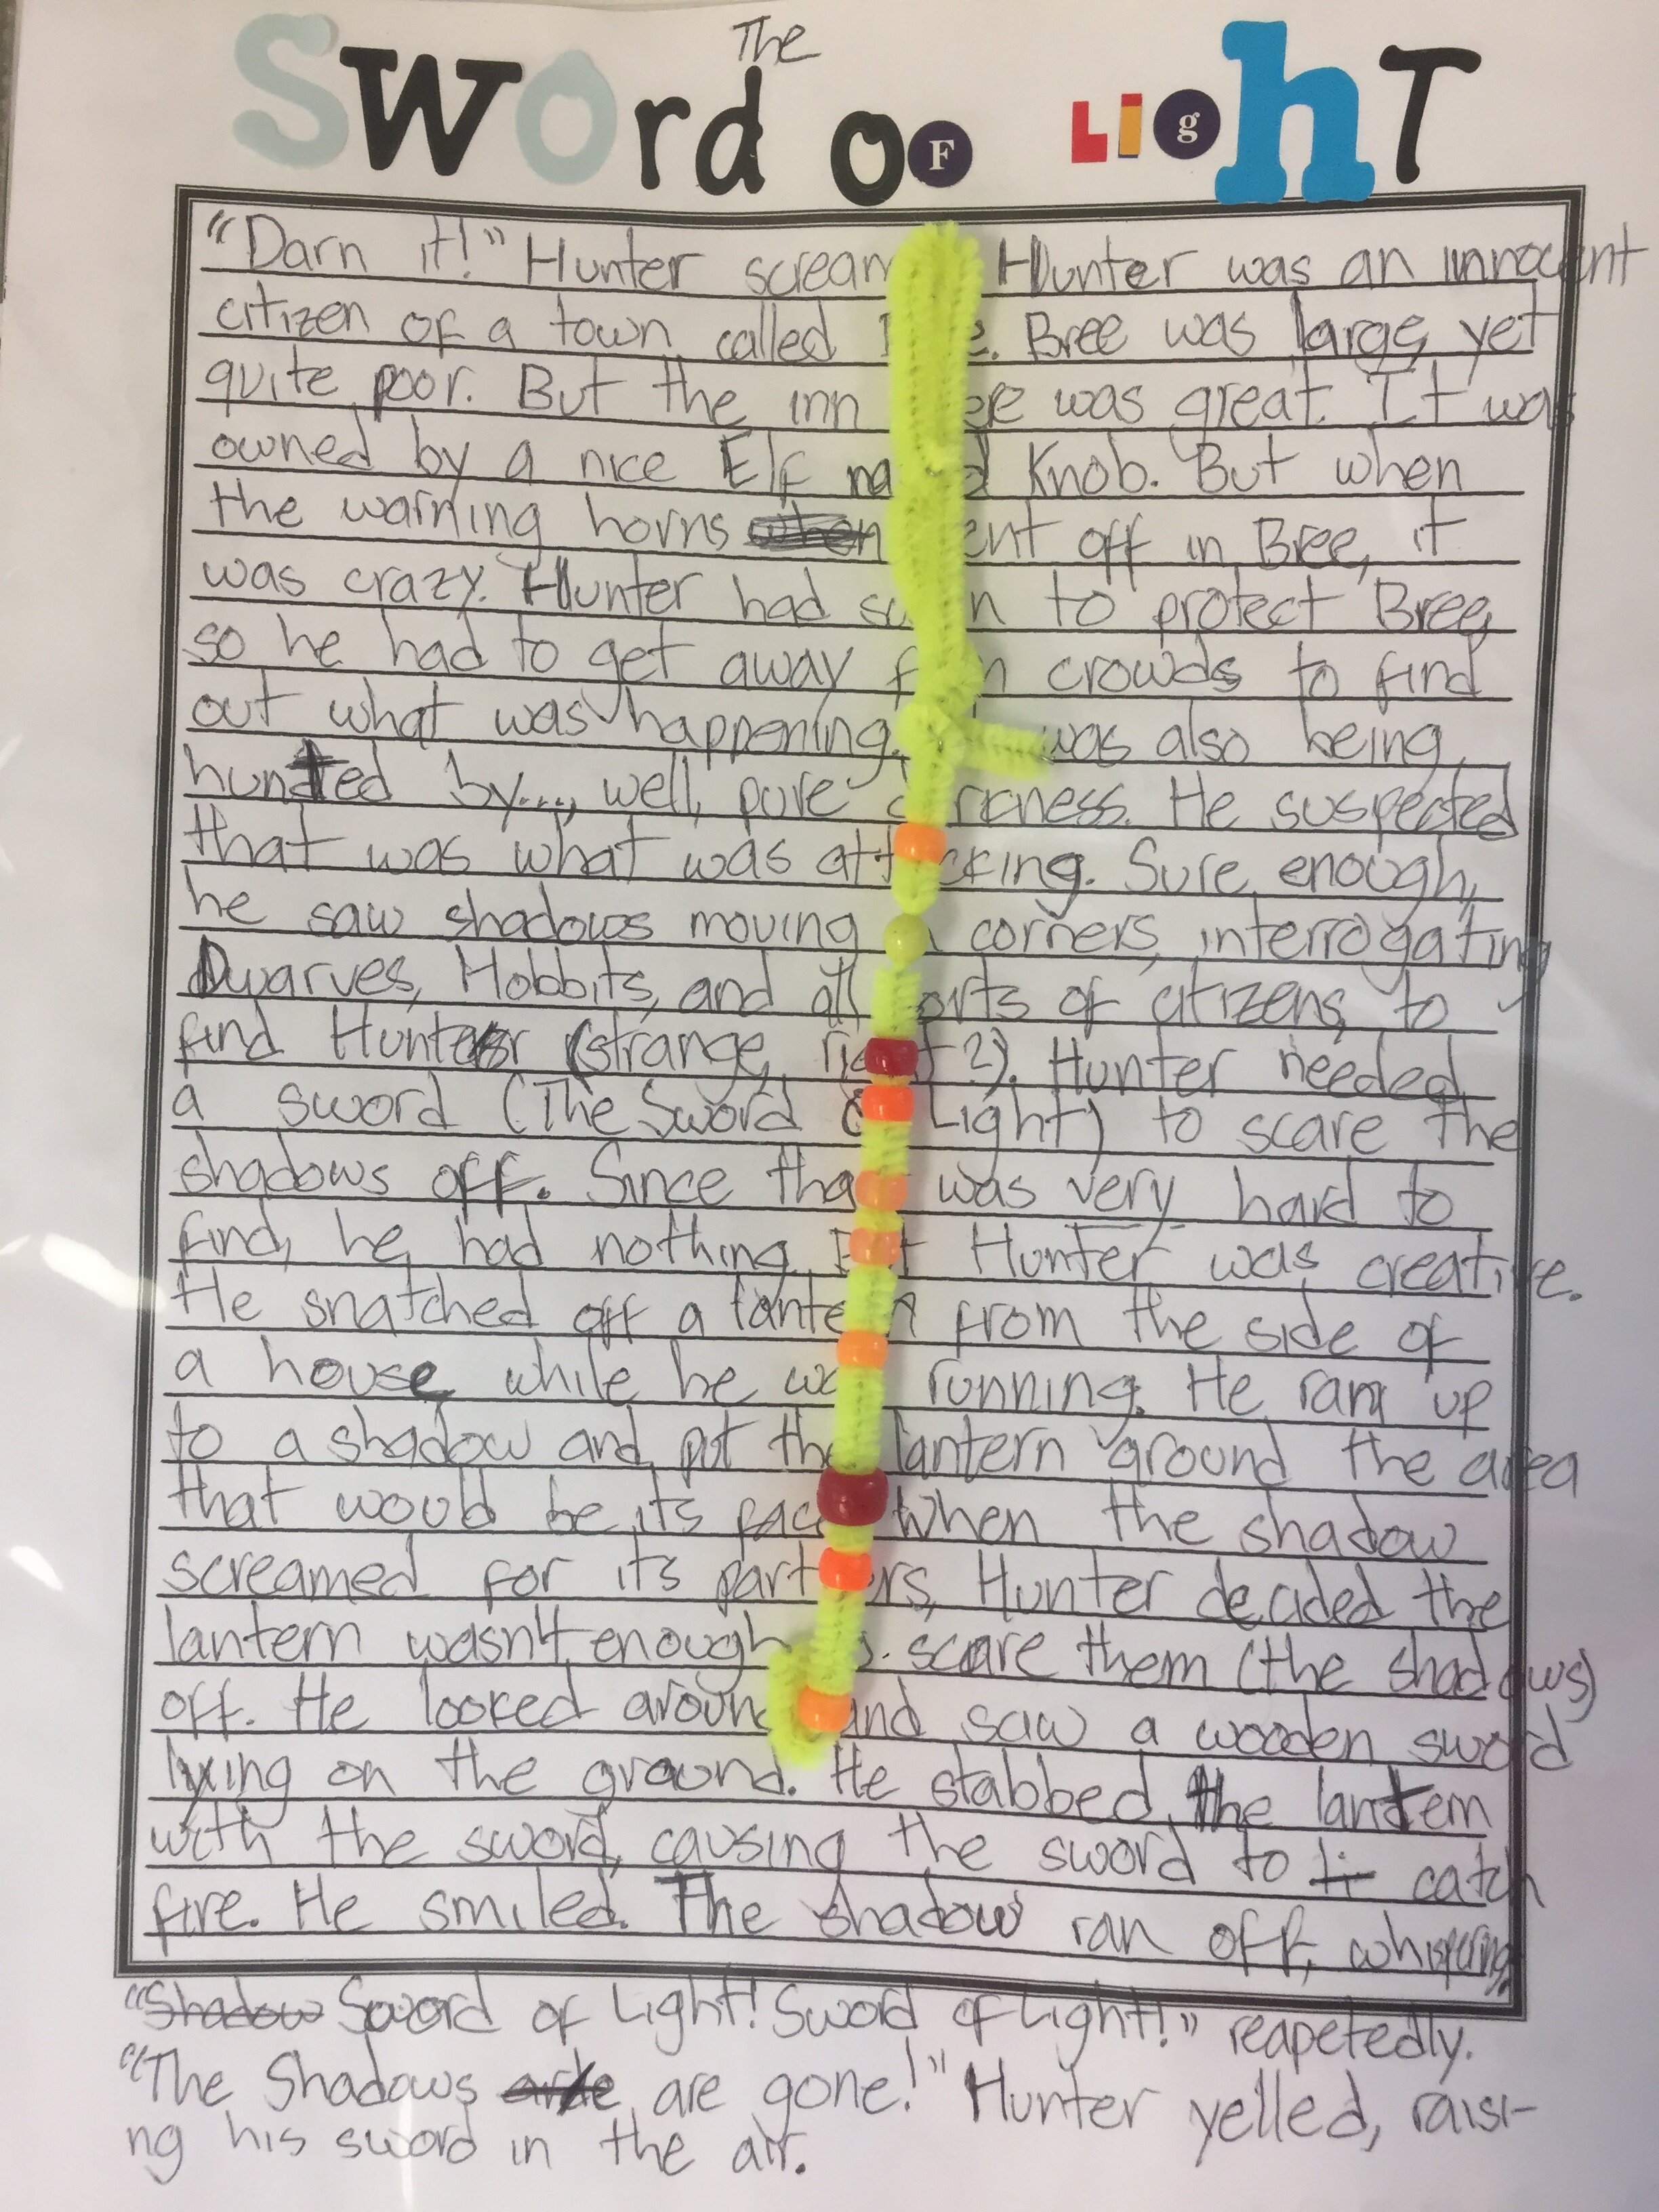 The
Sword OF LighT
"Darn it!" Hunter screamed. Hunter was an innocent
citizen of a town called Bree. Bree was large, yet
quite poor. But the inn there was great. It was
owned by a nice Elf named Knob. But when
the warning horns went off in Bree, it
was crazy. Hunter had sworn to protect Bree,
so he had to get away from crowds to find
out what was happening. was also being
hunted by..., well, pure darkness. He suspected
that was what was attacking. Sure enough,
he saw shadows moving in corners, interrogating
Dwarves, Hobbits, and all sorts of citizens, to
find Hunter (strange, right?). Hunter needed
a sword (The Sword of Light) to scare the
shadows off. Since that was very hard to
find, he had nothing. But Hunter was creative.
He snatched off a lantern from the side of
a house, while he was running. He ran up
to a shadow and put the lantern around the area
that would be its face. When the shadow
screamed for its partners, Hunter decided the
lantern wasn't enough to scare them (the shadows)
off. He looked around and saw a wooden sword
lying on the ground. He stabbed the lantern
with the sword, causing the sword to catch
fire. He smiled. The shadow ran off, whispering,
"Sword of Light! Sword of Light!" reapetedly.
"The Shadows are gone!" Hunter yelled, raisi-
ng his sword in the air.